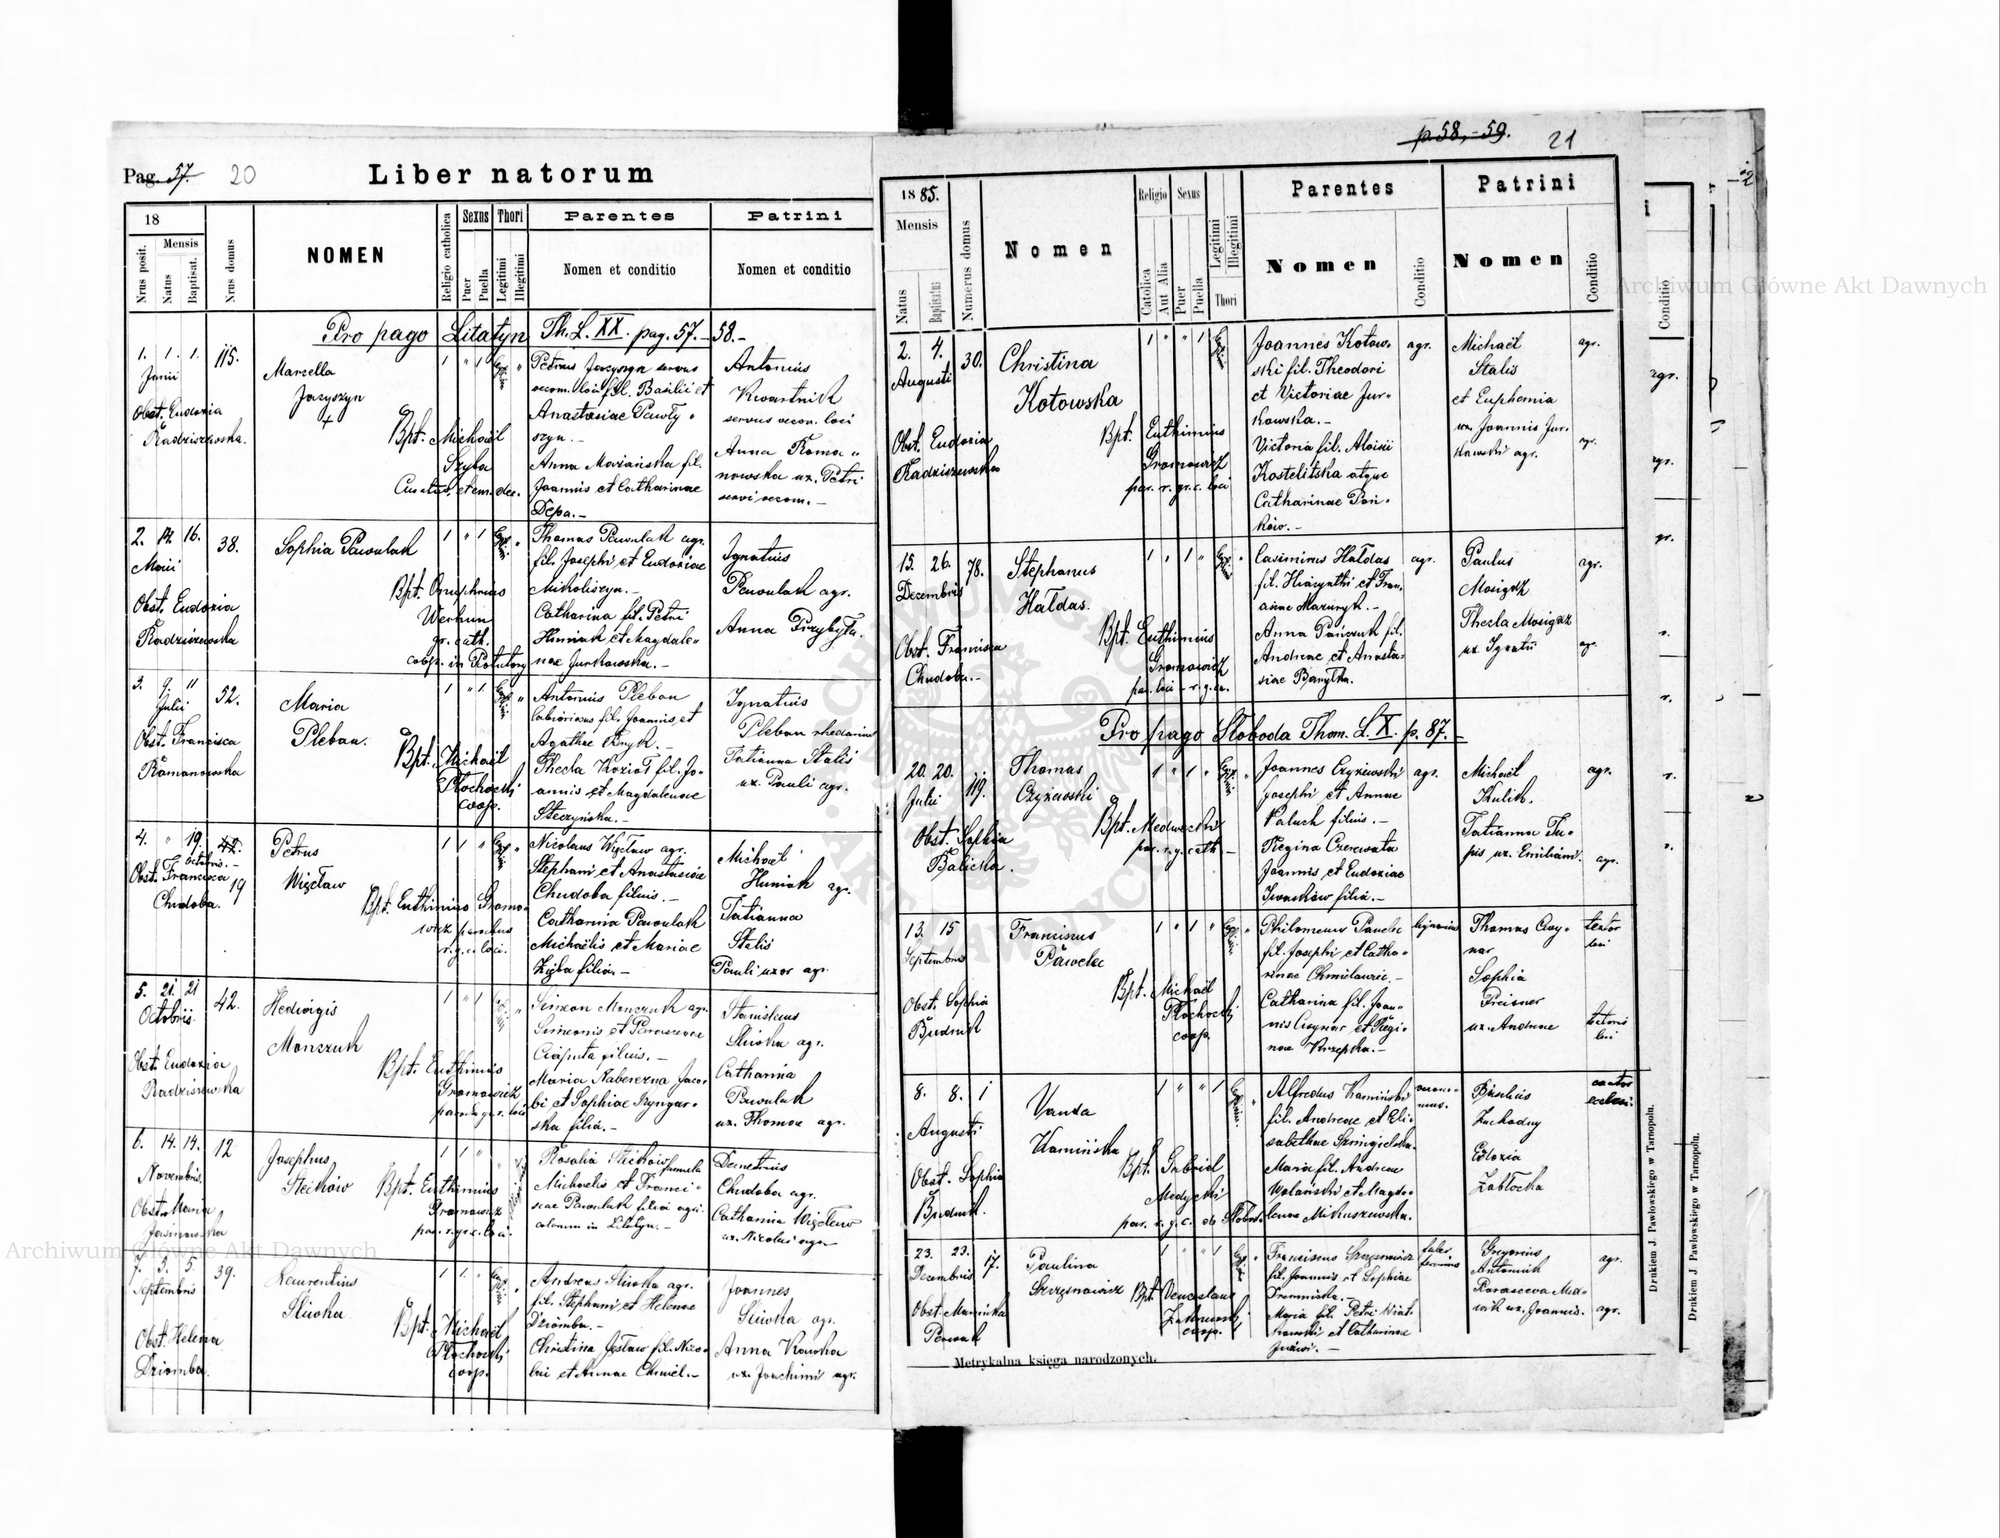 Pag. 57. 20
Liber natorum
18
Nrus posit.
Mensis
Natus
Baptisat.
Nrus domus
NOMEN
Religio catholica
Sexus
Puer
Puella
Thori
Legitimi
Illegitimi
Parentes
Nomen et conditio
Patrini
Nomen et conditio
Pro pago Litatyn Th. L. XX. pag. 57. - 58. -
1. 1. 1. 115.
Junii
Obst. Eudoxia
Radziszewska.
Marcella
Jaryszyn
+
Bpt. Michaël
Szyba
1 " 1
Petrus Jaryszyn servus
oecon. loci fil. Basilii et
Anastasiae Pawły-
szyn. -
Anna Mariańska fil.
Joannis et Catharinae
Depa. -
Antonius
Kwartnik
servus oecon. loci
Anna Roma-
nowska ux. Petri
servi oecon. -
2. 14. 16. 38.
Maii
Obst. Eudoxia
Radziszewska
Sophia Pawulak
Bpt. Onuphrius
Werhun
gr. cath.
coop. in Potutory
1 " 1
Thomas Pawulak agr.
fil. Josephi et Eudoxiae
Mikoliszyn. -
Catharina fil. Petri
Huniak et Magdale-
nae Jurkowska. -
Ignatius
Pawulak agr.
Anna Przybyła.
3. 9. 11 52.
Julii
Obst. Francisca
Romanowska
Maria
Pleban.
Bpt. Michaël
Płochocki
coop.
1 " 1
Antonius Pleban
fil. Joannis et
Agathae Kmyk. -
Thecla Kozioł fil. Jo-
annis et Magdalenae
Steczyńska. -
Ignatius
Pleban rhedarius
Tatianna Stalis
ux. Pauli agr.
4. " 19. 42.
Octobris. -
Obst. Francisca 19
Chudoba.
Petrus
Więcław
Bpt. Euthimius Gromo-
wicz parochus
r. g. c. loci.
1 1 "
Nicolaus Więcław agr.
Stephani et Anastasiae
Chudoba filius. -
Catharina Pawulak
Michaëlis et Mariae
Zięba filia. -
Michaël
Huniak agr.
Tatianna
Stalis
Pauli uxor agr.
5. 21. 21 42.
Octobris
Obst. Eudoxia
Radziszewska
Hedwigis
Monczuk
Bpt. Euthimius
Gromowicz
1 " 1
Simeon Monczuk agr.
Simeonis et Parascevae
filius. -
Maria Naberezna Jaco-
bi et Sophiae Pryngar-
ska filia. -
Stanislaus
Śliwka agr.
Catharina
Pawulak
ux. Thomae agr.
6. 14. 14. 12
Novembris
Obst. Maria
Josephus
Steików
Bpt. Euthimius
Gromowicz
par. r. gr. c. loci.
1 1 "
Rosalia Steików famula
Michaelis et Franci-
scae Pawulak filia agri-
colarum in Litatyn. -
Demetrius
Chudoba agr.
Catharina Więcław
ux. Nicolai agr.
7. 3. 5. 39.
Septembris
Obst. Helena
Dziomba.
Laurentius
Śliwka
Bpt. Michaël
Płochocki
coop.
1 1 "
Andreas Śliwka agr.
fil. Stephani et Helenae
Dziomba. -
Christina Jesław fil. Nico-
lai et Annae Chmiel. -
Joannes
Śliwka agr.
Anna Kawka
ux. Joachimi agr.
p. 58, -59. 21
18 85.
Mensis
Natus
Baptisatus
Numerus domus
Nomen
Religio
Catholica
Aut Alia
Sexus
Puer
Puella
Legitimi
Illegitimi
Thori
Parentes
Nomen
Conditio
Patrini
Nomen
Conditio
2. 4. 30.
Augusti
Obst. Eudoxia
Radziszewska
Christina
Kotowska
Bpt. Euthimius
Gromowicz
par. r. gr. c. loci
1 " " 1
Joannes Kotow-
ski fil. Theodori
et Victoriae Jur-
kowska. -
Victoria fil. Aloisii
Kostelitska atque
Catharinae Pań-
ków. -
agr.
Michaël
Stalis
et Euphemia
ux. Joannis Jur-
kowski agr.
agr.
15. 26. 78.
Decembris
Obst. Francisca
Chudoba. -
Stephanus
Hałdas.
Bpt. Euthimius
Gromowicz
par. loci - r. g. ca.
1 " 1 "
Casimirus Hałdas
fil. Hiacynthi et Fran-
ciscae Mazuryk. -
Anna Pańczuk fil.
Andreae et Anasta-
siae Baryłka.
agr.
Paulus
Mosiądz
Thecla Mosiądz
ux. Ignatii
agr.
agr.
Pro pago Słoboda Thom. L. X. p. 87. -
20. 20. 119.
Julii
Obst. Sophia
Balicka.
Thomas
Czyżewski
Bpt. Medwecki
par. r. g. cath. -
1 " 1 "
Joannes Czyżewski
Josephi et Annae
Paluch filius. -
Regina Czerwata
Joannis et Eudoxiae
Iwasków filia. -
agr.
Michaël
Kulik.
Tatianna Tu-
pis ux. Emiliani.
agr.
agr.
13. 15
Septembris
Obst. Sophia
Budnik
Franciscus
Pawelec
Bpt. Michaël
Płochocki
coop.
1 " 1 "
Philomenus Pawelec
fil. Josephi et Catha-
rinae Chmilowic. -
Catharina fil. Joan-
nis Czynar et Regi-
nae Krzepka. -
Thomas Czy-
nar
Sophia
Preisner
ux. Andreae
textor
loci
textoris
loci
8. 8. 1
Augusti
Obst. Sophia
Budnik.
Vanda
Kamińska
Bpt. Gabriel
Medycki
par. r. g. c. de Słobod.
1 " " 1
Alfredus Kamiński
fil. Andreae et Eli-
sabethae Szmigielska.
Maria fil. Andreae
Wolański et Magda-
lenae Mikuszewska.
Basilius
Zachodny
Eudoxia
Zabłocka
cantor
eccles.
23. 23. 17.
Decembris
Obst. Marinka
Pawuk
Paulina
Szczęsnowicz
Bpt. Venceslaus
coop.
1 " " 1
Franciscus Szczęsnowicz
fil. Joannis et Sophiae
Maria fil. Petri Wiat-
rowski et Catharinae
faber
ferrarius
Gregorius
Antoniuk
Parasceva Med-
wik ux. Joannis.
agr.
agr.
Metrykalna księga narodzonych.
Drukiem J. Pawłowskiego w Tarnopolu.
Drukiem J. Pawłowskiego w Tarnopolu.
Conditio
Archiwum Główne Akt Dawnych
Archiwum Główne Akt Dawnych